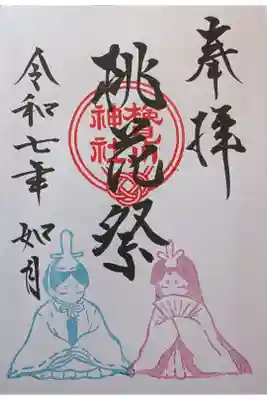 奉拝
桃花祭
神社
令和七年 如月